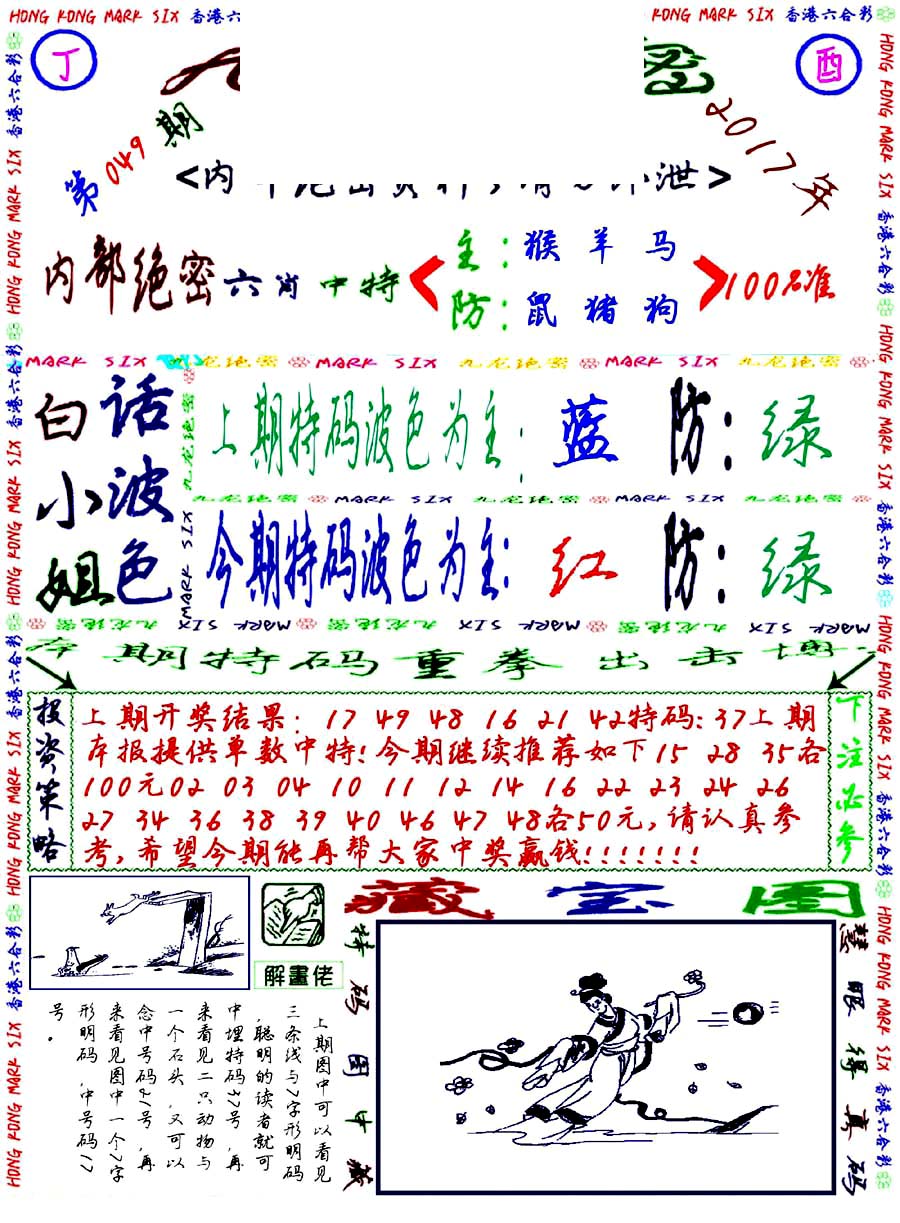 HONG KONG MARK SIX 香港六合彩
HONG KONG MARK SIX 香港六合彩
丁
酉
第049期
2017年
<内
泄>
内部绝密六肖中特
主：猴羊马
防：鼠猪狗
100%准
MARK SIX 九龙绝密 MARK SIX 九龙绝密 MARK SIX 九龙绝密
白话
小波
姐色
上期特码波色为主：蓝 防：绿
九龙绝密 MARK SIX 九龙绝密 MARK SIX 九龙绝密
今期特码波色为主：红 防：绿
九龙绝密 MARK SIX 九龙绝密 MARK SIX 九龙绝密 MARK SIX
期特码重拳出击
投资策略
上期开奖结果：17 49 48 16 21 42特码：37上期
本报提供单数中特！今期继续推荐如下15 28 35各
100元02 03 04 10 11 12 14 16 22 23 24 26
27 34 36 38 39 40 46 47 48各50元，请认真参
考，希望今期能再帮大家中奖赢钱！！！！！！！
下注必参
藏宝图
解畫佬
特码图中藏
慧眼得真码
上期图中可以看见
三条线与7字形明码
，聪明的读者就可
中埋特码37号，再
来看见二只动物与
一个石头，又可以
念中号码21号，再
来看见图中一个7字
形明码，中号码17
号。